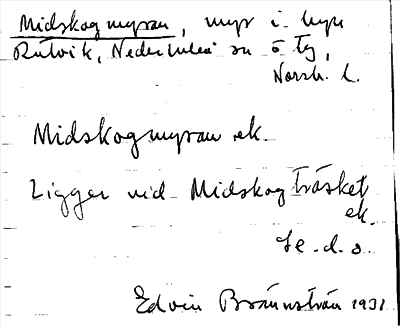 Midskogmyran, myr i byn
Rutvik, Nederluleå sn ö tg,
Norrb. l.
Midskogmyran ek.
Ligger vid Midskogträsket
ek.
Se. d. o.
Edvin Brännström 1931